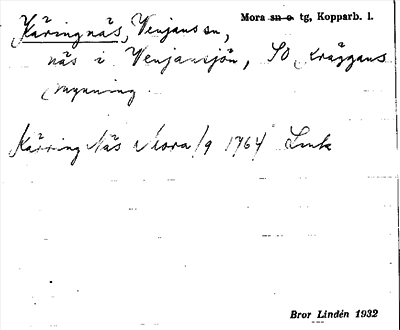 Mora sn o tg, Kopparb. l.
Käringnäs, Venjans sn,
näs i Venjansjön, SO Kräggans
mynning
Kärring Näs Mora /9 1764 Link
Bror Lindén 1932